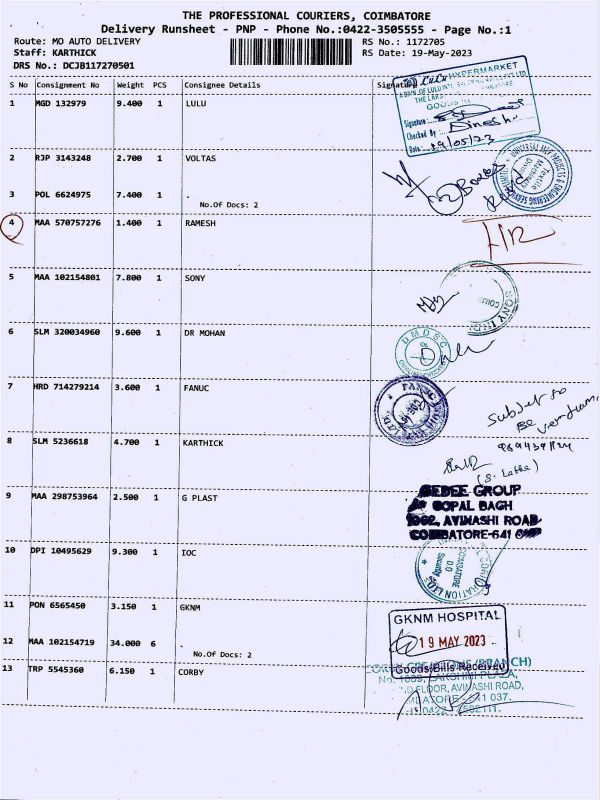 THE PROFESSIONAL COURIERS, COIMBATORE
Delivery Runsheet - PNP - Phone No.:0422-3505555 - Page No.:1
Route: MO AUTO DELIVERY RS No.: 1172705
Staff: KARTHICK RS Date: 19-May-2023
DRS No.: DCJB117270501
S No Consignment No Weight PCS Consignee Details
1 MGD 132979 9.400 1 LULU
LuLu HYPERMARKET
GOODS
Signature
Checked By Dinesh
Date: 19/05/23
2 RJP 3143248 2.700 1 VOLTAS
3 POL 6624975 7.400 1 .
No.Of Docs: 2
4 MAA 570757276 1.400 1 RAMESH
5 MAA 102154801 7.800 1 SONY
6 SLM 320034960 9.600 1 DR MOHAN
DMDSC
7 HRD 714279214 3.600 1 FANUC
FANUC
Subject to
Be
8 SLM 5236618 4.700 1 KARTHICK
9 MAA 298753964 2.500 1 G PLAST
GEDEE GROUP
GOPAL BAGH
AVINASHI ROAD
COIMBATORE-641
10 DPI 10495629 9.300 1 IOC
11 PON 6565450 3.150 1 GKNM
GKNM HOSPITAL
19 MAY 2023
Goods/Bills Received
12 MAA 102154719 34.000 6 .
No.Of Docs: 2
13 TRP 5545360 6.150 1 CORBY
(BRANCH)
LAKSHMI PLAZA,
FLOOR, AVINASHI ROAD,
037.